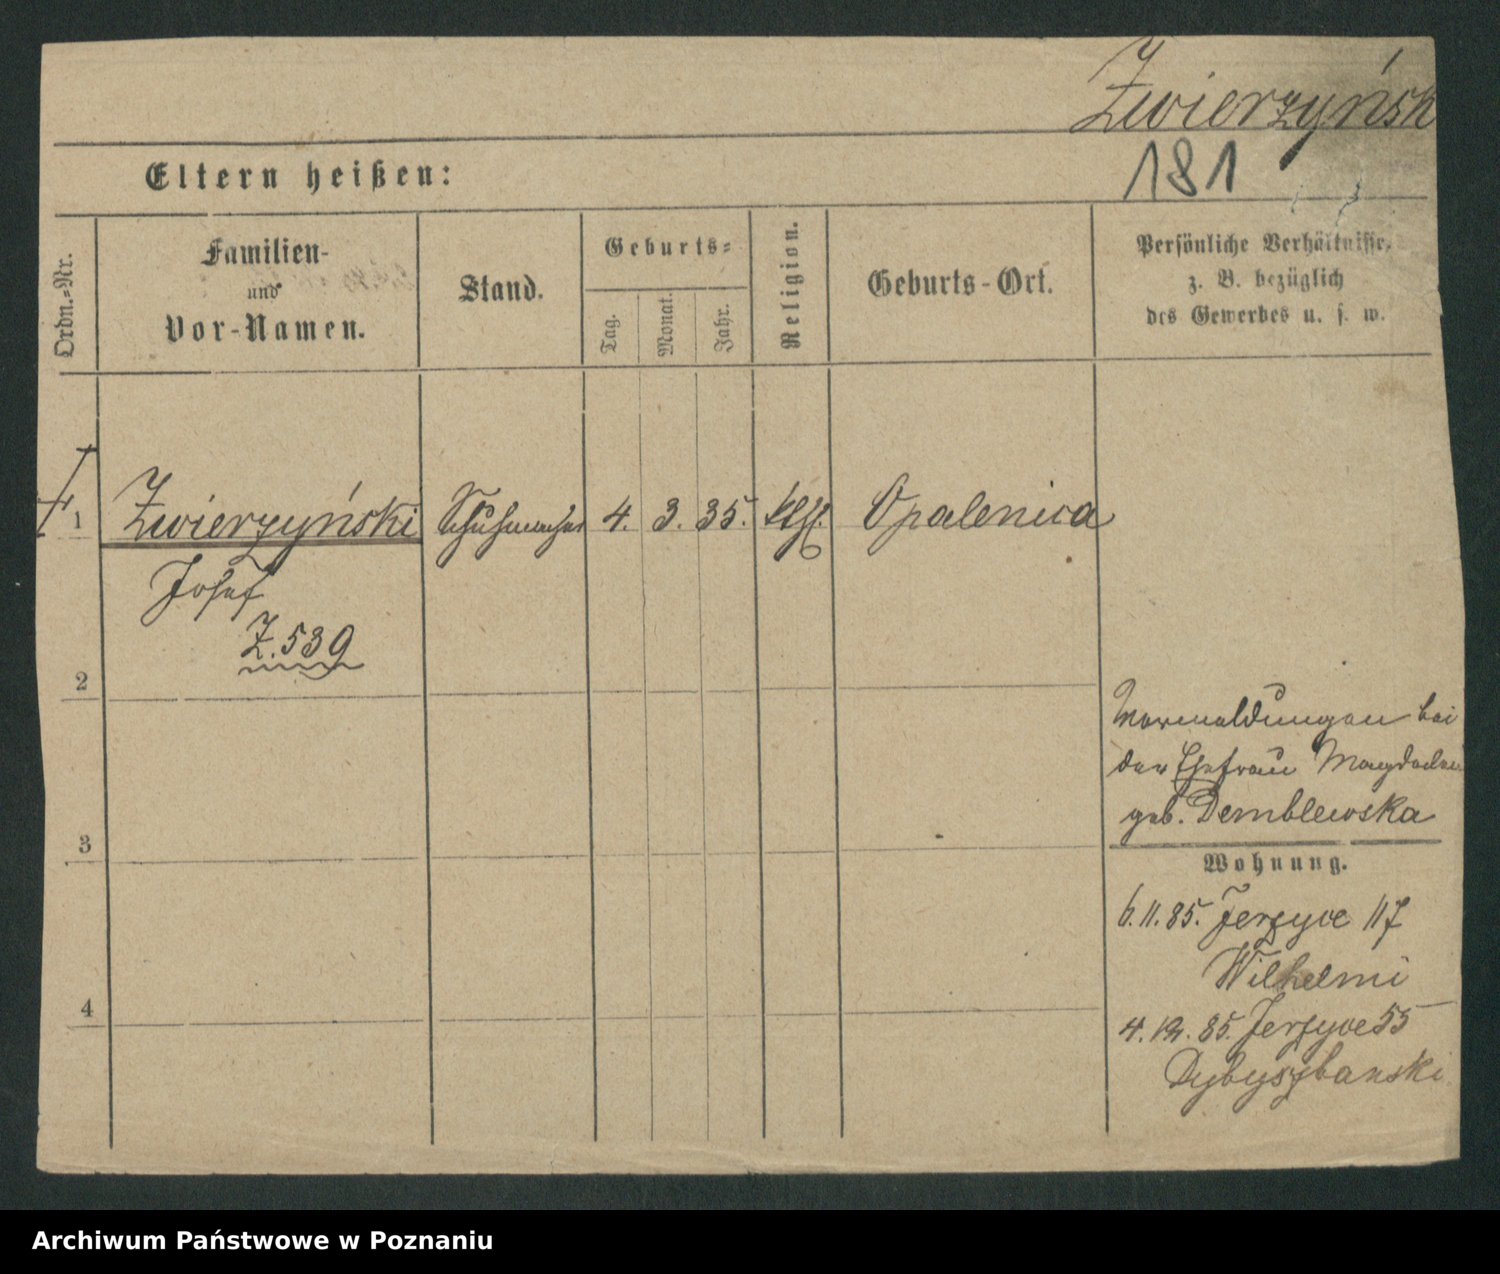 Zwierzyńsk
181
Eltern heißen:
Ordn.=Nr.
Familien-
und
Vor-Namen.
Stand.
Geburts=
Tag.
Monat.
Jahr.
Religion.
Geburts-Ort.
Persönliche Verhältnisse,
z. B. bezüglich
des Gewerbes u. s. w.
1 Zwierzyński Schuhmacher 4. 3. 35. kth. Opalenica
Josef
Z. 539
2
3
4
Vermeldungen bei
der Ehefrau
geb. Demblewska
Wohnung.
6. 11. 85. Jerzyce 117
Wilhelmi
4. 12. 85. Jerzyce 55
Archiwum Państwowe w Poznaniu